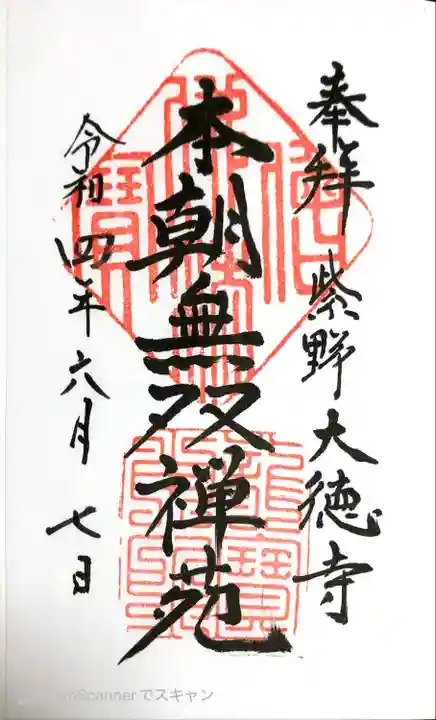 奉拝 紫野大徳寺
本朝無双禅苑
令和四年六月七日
Scannerでスキャン